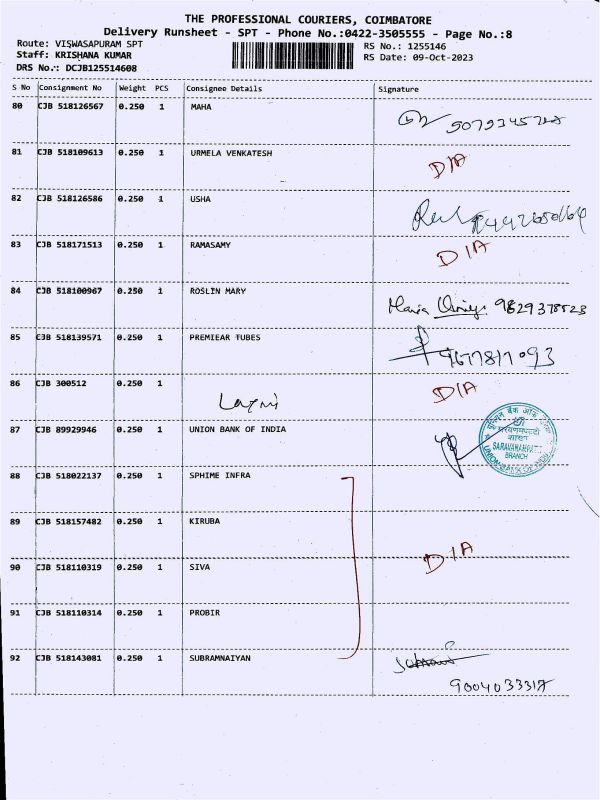 THE PROFESSIONAL COURIERS, COIMBATORE
Delivery Runsheet - SPT - Phone No.:0422-3505555 - Page No.:8
Route: VISWASAPURAM SPT
Staff: KRISHANA KUMAR
DRS No.: DCJB125514608
RS No.: 1255146
RS Date: 09-Oct-2023
S No Consignment No Weight PCS Consignee Details Signature
80 CJB 518126567 0.250 1 MAHA
81 CJB 518109613 0.250 1 URMELA VENKATESH D/A
82 CJB 518126586 0.250 1 USHA
83 CJB 518171513 0.250 1 RAMASAMY D/A
84 CJB 518100967 0.250 1 ROSLIN MARY 9629378523
85 CJB 518139571 0.250 1 PREMIEAR TUBES 9677817093
86 CJB 300512 0.250 1 Laxmi D/A
87 CJB 89929946 0.250 1 UNION BANK OF INDIA
SARAVANAMPATTI
BRANCH
UNION BANK OF INDIA
88 CJB 518022137 0.250 1 SPHIME INFRA
89 CJB 518157482 0.250 1 KIRUBA
90 CJB 518110319 0.250 1 SIVA D/A
91 CJB 518110314 0.250 1 PROBIR
92 CJB 518143081 0.250 1 SUBRAMNAIYAN
9004033317